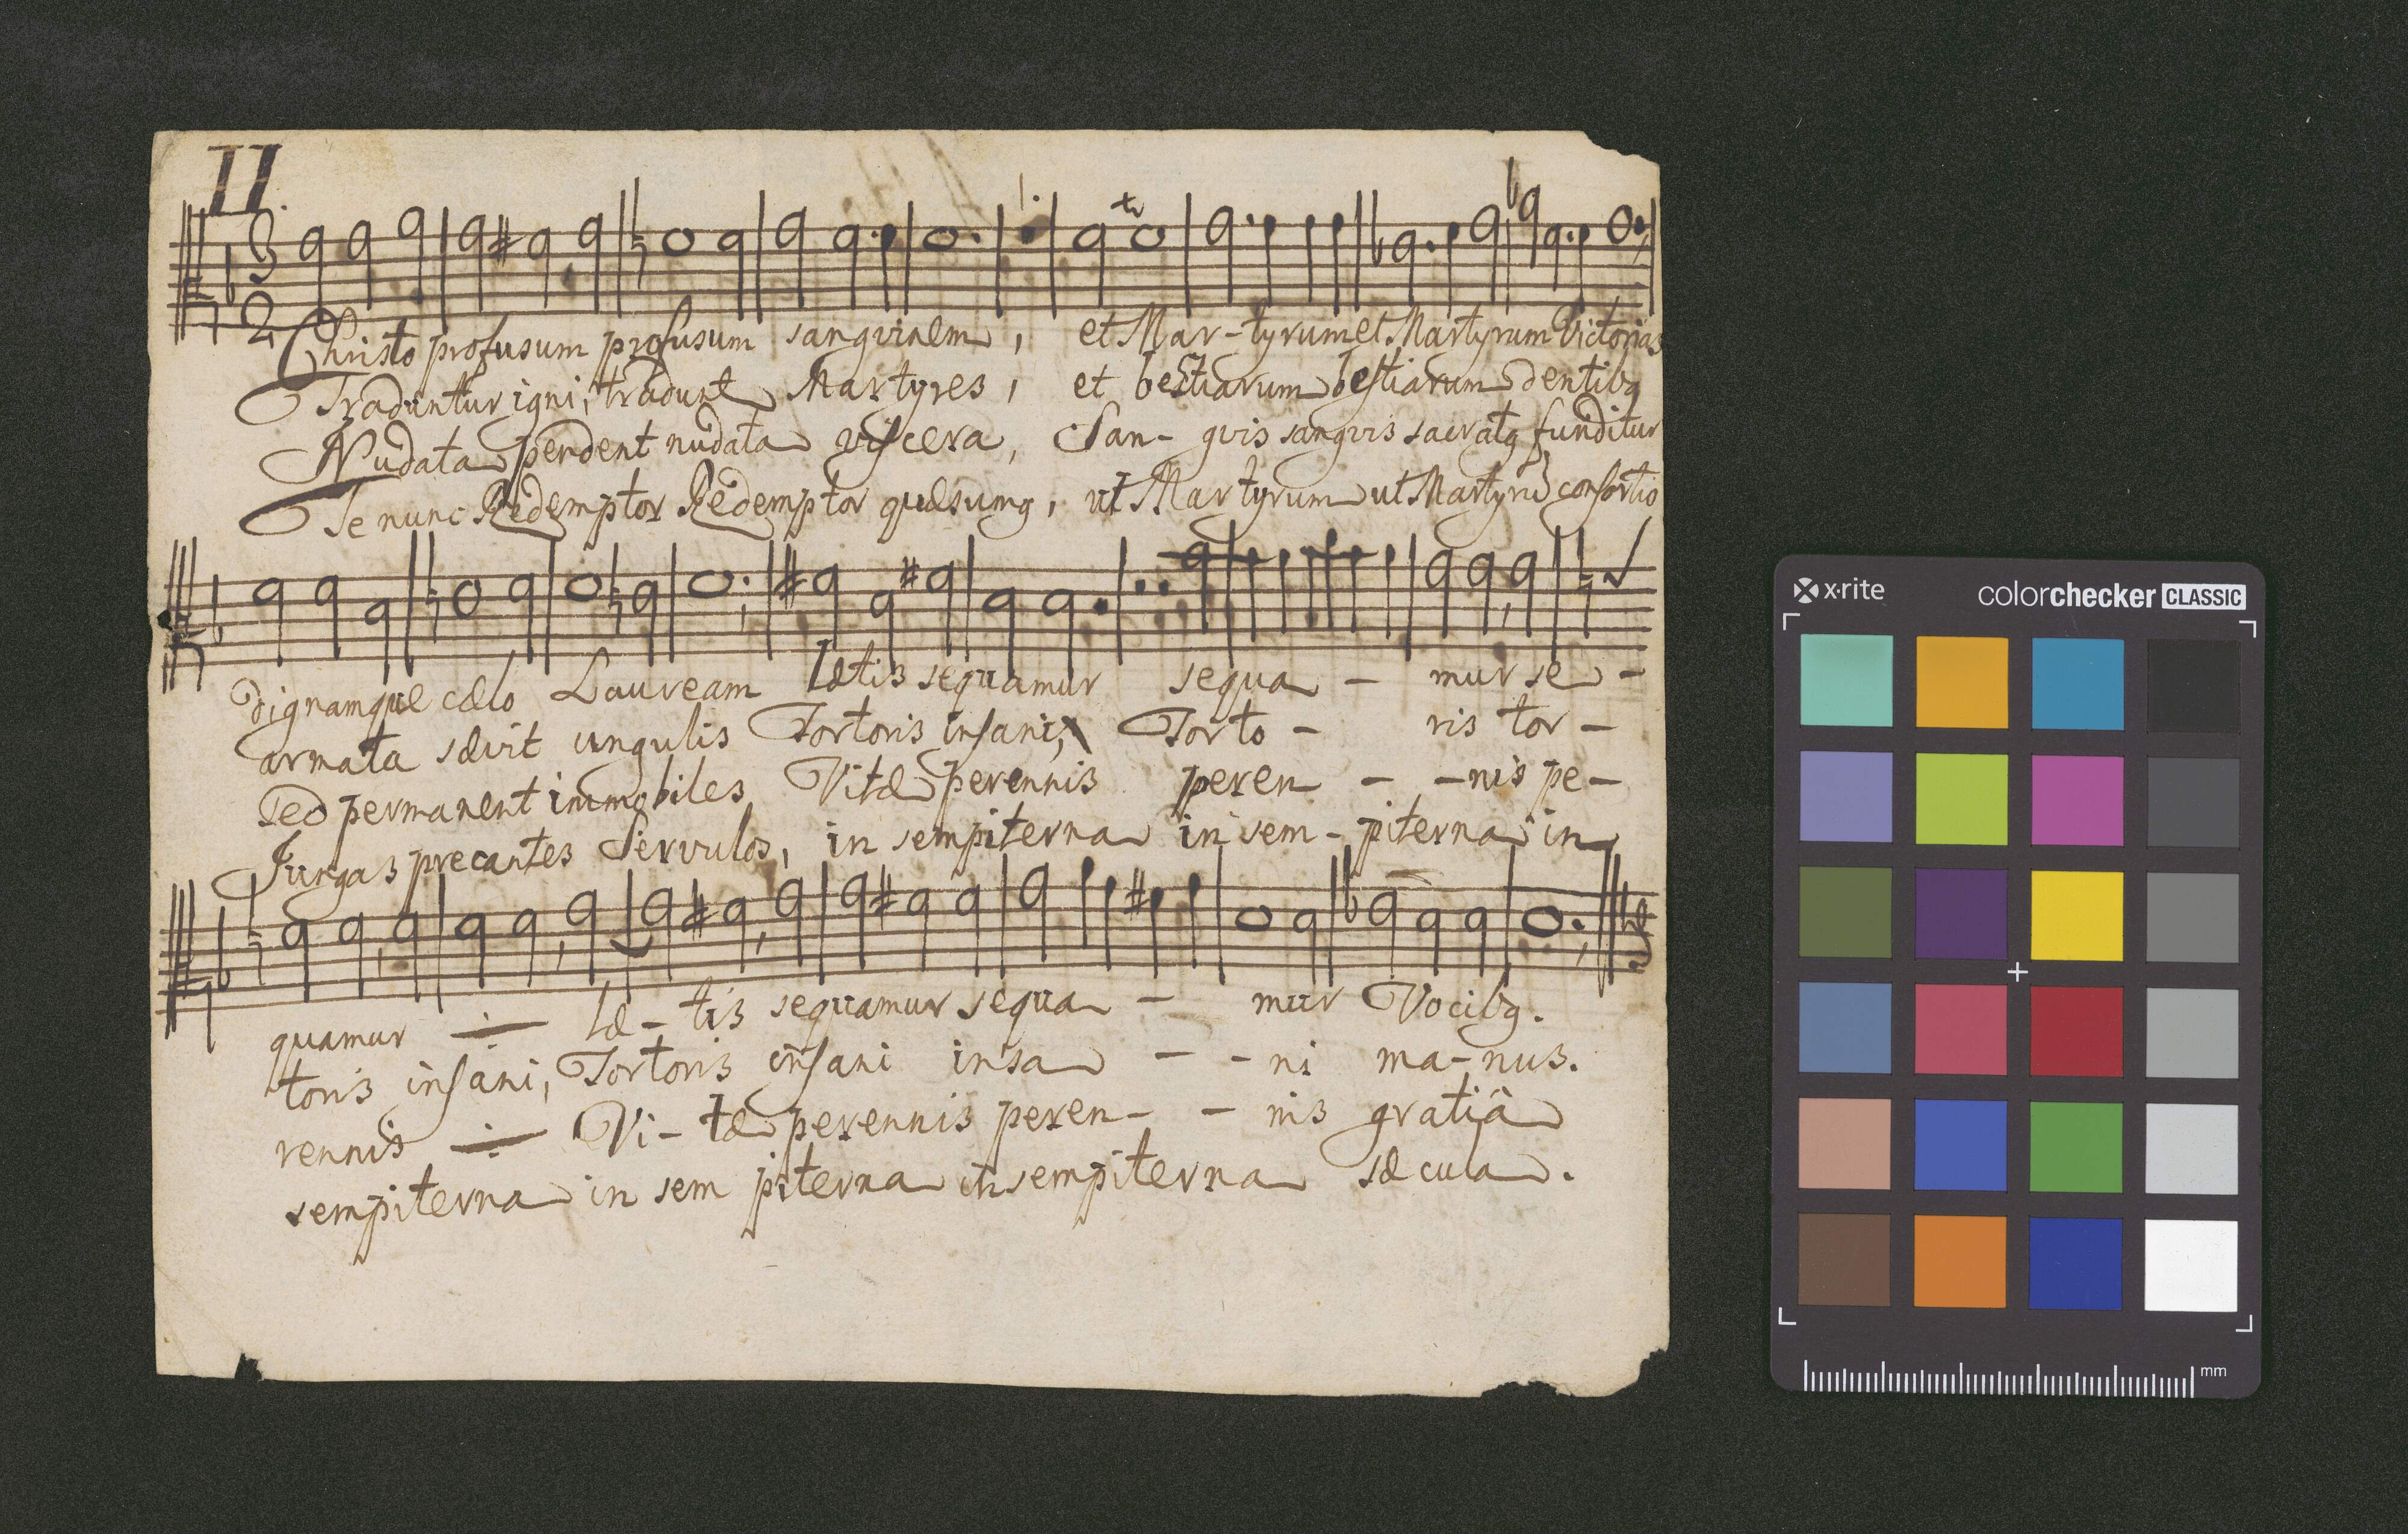 II.
3
2
Christo profusum profusum sanguinem, et Mar-tyrum et Martyrum Victorias
Traduntur igni, tradunt Martyres, et bestiarum bestiarum dentibꝰ
Nudata pendent nudata viscera, San- guis sanguis sacratꝰ funditur
Te nunc Redemptor Redemptor quæsumꝰ, ut Martyrum ut Martyrū consortio
dignamque cælo Lauream lætis sequamur sequa - mur se -
armata sævit ungulis Tortoris insani, Torto - ris tor -
sed permanent immobiles Vitæ perennis peren - - nis pe -
Jungas precantes Servulos, in sempiterna in sem - piterna in
quamur ÷ læ - tis sequamur sequa - mur Vocibꝰ.
toris insani, Tortoris insani insa - - ni ma-nus.
rennis ÷ Vi- tæ perennis peren- - nis gratiâ
sempiterna in sem piterna in sempiterna sæcula.
x·rite colorchecker CLASSIC
mm